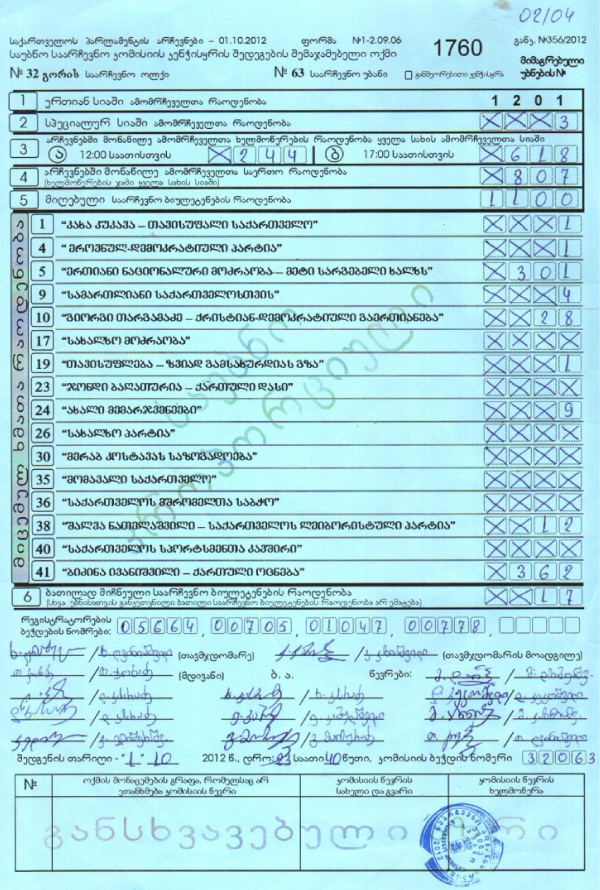 02/04
საქართველოს პარლამენტის არჩევნები - 01.10.2012 ფორმა №1-2.09.06 1760 განკ. №356/2012
საუბნო საარჩევნო კომისიის კენჭისყრის შედეგების შემაჯამებელი ოქმი მიმაგრებული
№ 32 გორის საარჩევნო ოლქი № 63 საარჩევნო უბანი განმეორებითი კენჭისყრა უბნების№
1 ერთიან სიაში ამომრჩეველთა რაოდენობა 1 2 0 1
2 სპეციალურ სიაში ამომრჩეველთა რაოდენობა X X X 3
3 არჩევნებში მონაწილე ამომრჩეველთა ხელმოწერების რაოდენობა ყველა სახის ამომრჩეველთა სიაში
ა 12:00 საათისთვის X 2 4 4 ბ 17:00 საათისთვის X 6 1 8
4 არჩევნებში მონაწილე ამომრჩეველთა საერთო რაოდენობა X 8 0 7
(ხელმოწერების ჯამი ყველა სახის სიაში)
5 მიღებული საარჩევნო ბიულეტენების რაოდენობა 1 1 0 0
მიცემულ ხმათა რაოდენობა
1 "კახა კუკავა – თავისუფალი საქართველო" X X X 1
4 "ეროვნულ-დემოკრატიული პარტია" X X X 1
5 "ერთიანი ნაციონალური მოძრაობა – მეტი სარგებელი ხალხს" X 3 0 1
9 "სამართლიანი საქართველოსთვის" X X X 4
10 "გიორგი თარგამაძე – ქრისტიან-დემოკრატიული გაერთიანება" X X 2 8
17 "სახალხო მოძრაობა" X X X X
19 "თავისუფლება – ზვიად გამსახურდიას გზა" X X X 1
23 "ჯონდი ბაღათურია – ქართული დასი" X X X X
24 "ახალი მემარჯვენეები" X X X 9
26 "სახალხო პარტია" X X X X
30 "მერაბ კოსტავას საზოგადოება" X X X X
35 "მომავალი საქართველო" X X X X
36 "საქართველოს მშრომელთა საბჭო" X X X X
38 "შალვა ნათელაშვილი – საქართველოს ლეიბორისტული პარტია" X X 1 2
40 "საქართველოს სპორტსმენთა კავშირი" X X X X
41 "ბიძინა ივანიშვილი – ქართული ოცნება" X 3 6 2
საუბნო
პროპორციული
6 ბათილად მიჩნეული საარჩევნო ბიულეტენების რაოდენობა X X 1 7
(სხვა უბნისთვის განკუთვნილი ბათილი საარჩევნო ბიულეტენების რაოდენობა არ ემატება)
რეგისტრატორების
ბეჭდების ნომრები: 05664, 00705, 01047, 00778,
(თავმჯდომარე) (თავმჯდომარის მოადგილე)
(მდივანი) ბ. ა. წევრები:
შედგენის თარიღი - "1" 10 2012 წ., დრო: 23 საათი 40 წუთი, კომისიის ბეჭდის ნომერი 32063
№ ოქმის მონაცემების გრაფა, რომელსაც არ ეთანხმება კომისიის წევრი კომისიის წევრის სახელი და გვარი კომისიის წევრის ხელმოწერა
განსხვავებული აზრი